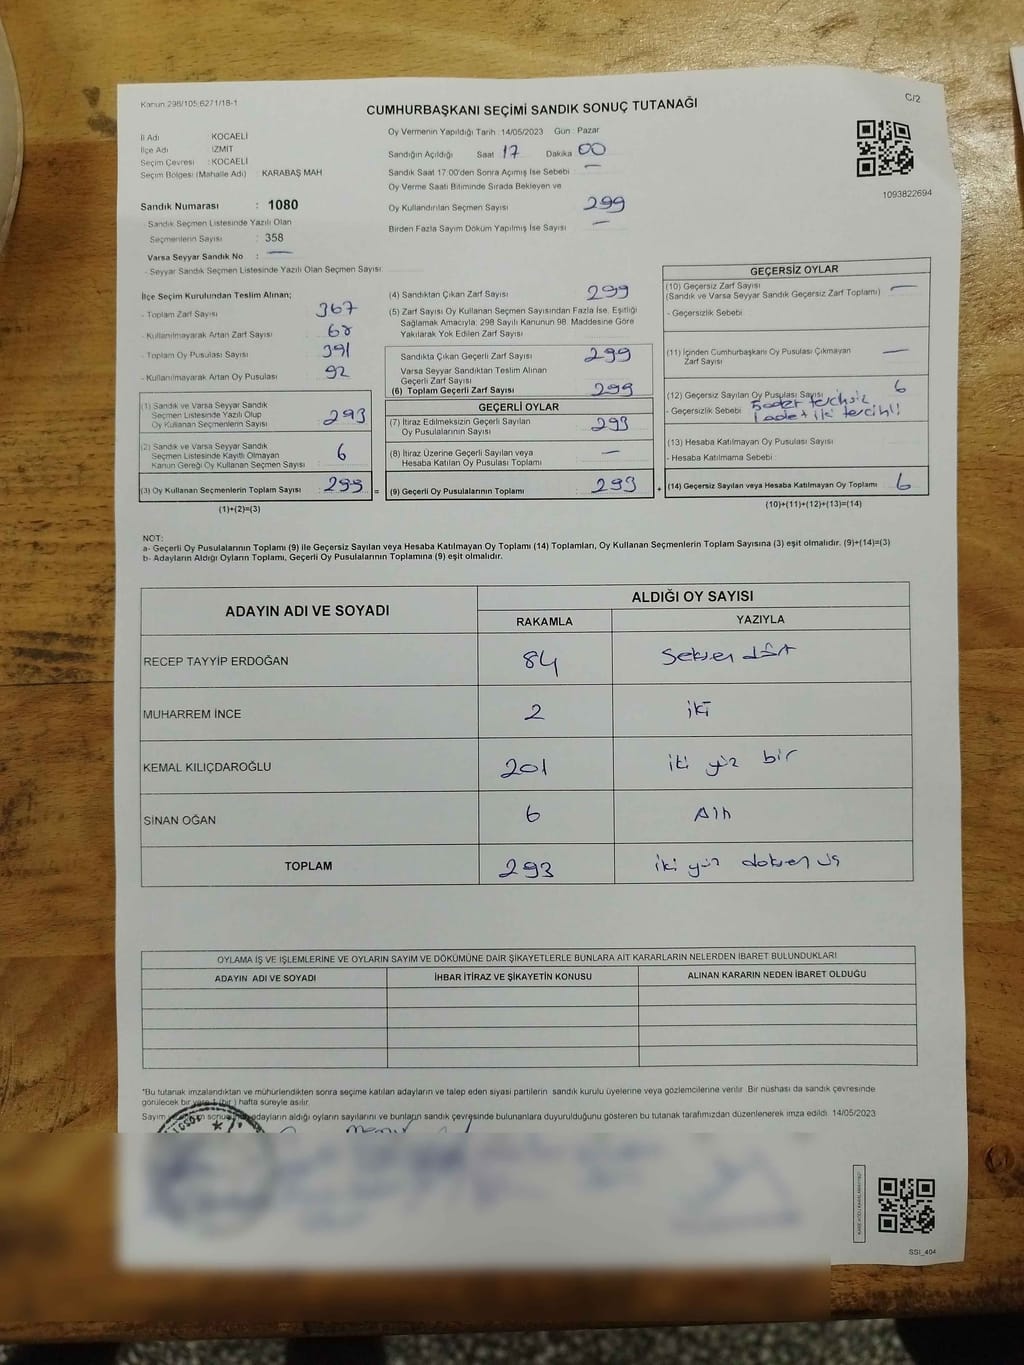 Kanun 298/105;6271/18-1
C/2
CUMHURBAŞKANI SEÇİMİ SANDIK SONUÇ TUTANAĞI
İl Adı KOCAELİ
İlçe Adı İZMİT
Seçim Çevresi : KOCAELİ
Seçim Bölgesi (Mahalle Adı) KARABAŞ MAH
Sandık Numarası : 1080
- Sandık Seçmen Listesinde Yazılı Olan
Seçmenlerin Sayısı : 358
Varsa Seyyar Sandık No : —
- Seyyar Sandık Seçmen Listesinde Yazılı Olan Seçmen Sayısı
Oy Vermenin Yapıldığı Tarih : 14/05/2023 Gün : Pazar
Sandığın Açıldığı Saat 17 Dakika 00
Sandık Saat 17:00'den Sonra Açımış İse Sebebi —
Oy Verme Saati Bitiminde Sırada Bekleyen ve
Oy Kullandırılan Seçmen Sayısı 299
Birden Fazla Sayım Döküm Yapılmış İse Sayısı —
1093822694
İlçe Seçim Kurulundan Teslim Alınan;
- Toplam Zarf Sayısı : 367
- Kullanılmayarak Artan Zarf Sayısı : 68
- Toplam Oy Pusulası Sayısı : 391
- Kullanılmayarak Artan Oy Pusulası : 92
(1) Sandık ve Varsa Seyyar Sandık
Seçmen Listesinde Yazılı Olup
Oy Kullanan Seçmenlerin Sayısı : 293
(2) Sandık ve Varsa Seyyar Sandık
Seçmen Listesinde Kayıtlı Olmayan
Kanun Gereği Oy Kullanan Seçmen Sayısı : 6
(3) Oy Kullanan Seçmenlerin Toplam Sayısı : 299 =
(1)+(2)=(3)
(4) Sandıktan Çıkan Zarf Sayısı : 299
(5) Zarf Sayısı Oy Kullanan Seçmen Sayısından Fazla İse, Eşitliği
Sağlamak Amacıyla; 298 Sayılı Kanunun 98. Maddesine Göre
Yakılarak Yok Edilen Zarf Sayısı
Sandıkta Çıkan Geçerli Zarf Sayısı : 299
Varsa Seyyar Sandıktan Teslim Alınan
Geçerli Zarf Sayısı
(6) Toplam Geçerli Zarf Sayısı : 299
GEÇERLİ OYLAR
(7) İtiraz Edilmeksizin Geçerli Sayılan
Oy Pusulalarının Sayısı : 293
(8) İtiraz Üzerine Geçerli Sayılan veya
Hesaba Katılan Oy Pusulası Toplamı : —
(9) Geçerli Oy Pusulalarının Toplamı : 293 +
GEÇERSİZ OYLAR
(10) Geçersiz Zarf Sayısı
(Sandık ve Varsa Seyyar Sandık Geçersiz Zarf Toplamı) : —
- Geçersizlik Sebebi
(11) İçinden Cumhurbaşkanı Oy Pusulası Çıkmayan
Zarf Sayısı —
(12) Geçersiz Sayılan Oy Pusulası Sayısı 6
5 adet tercihsiz
- Geçersizlik Sebebi 1 adet iki tercihli
(13) Hesaba Katılmayan Oy Pusulası Sayısı
- Hesaba Katılmama Sebebi
(14) Geçersiz Sayılan veya Hesaba Katılmayan Oy Toplamı : 6
(10)+(11)+(12)+(13)=(14)
NOT:
a- Geçerli Oy Pusulalarının Toplamı (9) ile Geçersiz Sayılan veya Hesaba Katılmayan Oy Toplamı (14) Toplamları, Oy Kullanan Seçmenlerin Toplam Sayısına (3) eşit olmalıdır. (9)+(14)=(3)
b- Adayların Aldığı Oyların Toplamı, Geçerli Oy Pusulalarının Toplamına (9) eşit olmalıdır.
ADAYIN ADI VE SOYADI
ALDIĞI OY SAYISI
RAKAMLA YAZIYLA
RECEP TAYYİP ERDOĞAN 84 Seksen dört
MUHARREM İNCE 2 iki
KEMAL KILIÇDAROĞLU 201 iki yüz bir
SİNAN OĞAN 6 Altı
TOPLAM 293 iki yüz doksen üç
OYLAMA İŞ VE İŞLEMLERİNE VE OYLARIN SAYIM VE DÖKÜMÜNE DAİR ŞİKAYETLERLE BUNLARA AİT KARARLARIN NELERDEN İBARET BULUNDUKLARI
ADAYIN ADI VE SOYADI İHBAR İTİRAZ VE ŞİKAYETİN KONUSU ALINAN KARARIN NEDEN İBARET OLDUĞU
"Bu tutanak imzalandıktan ve mühürlendikten sonra seçime katılan adayların ve talep eden siyasi partilerin sandık kurulu üyelerine veya gözlemcilerine verilir. Bir nüshası da sandık çevresinde
görülecek bir yere 1 (bir) hafta süreyle asılır.
Sayım adayların aldığı oyların sayılarını ve bunların sandık çevresinde bulunanlara duyurulduğunu gösteren bu tutanak tarafımızdan düzenlenerek imza edildi. 14/05/2023
SSI_404